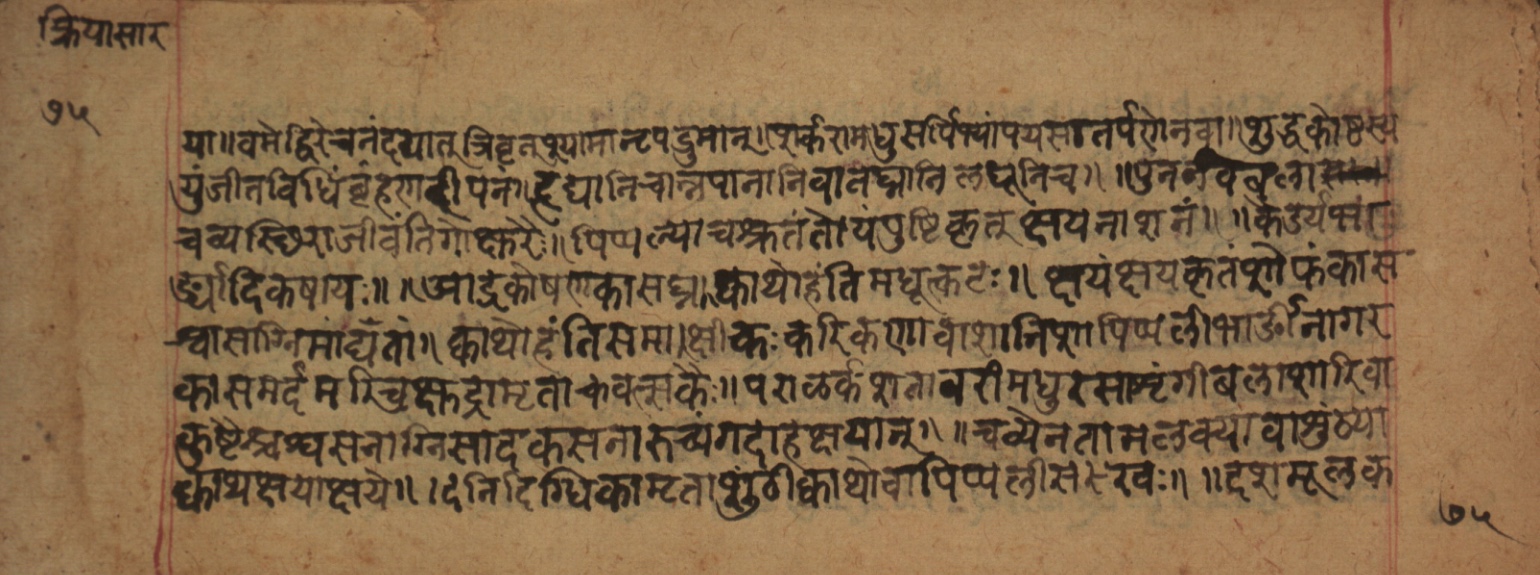 क्रियासार
७५
या॥वमेद्विरेचनंदद्यात् त्रिवृत्श्यामान्टपद्रुमान्।शर्करामधुसर्पिभ्यांपयसातर्पणेनवा॥शुद्धकोष्ठस्य
युंजीतविधिंबृंहणदीपनं।हृद्यानिचान्नपानानिवातघ्नानिलघूनिच॥ ॥पुनर्नवबला
चव्यस्थिराजीवंतिगोक्षुरैः॥पिप्पल्याचश्रृतंतोयंपुष्टिकृत् क्षयनाशनं॥ ॥
दिकषायः॥ ॥आर्द्रकोषणकासघ्नक्वाथोहंतिमधूत्कटः॥ क्षयंक्षयकृतंशोफंकास
श्वासाग्निमांद्यतां॥ क्वाथोहंतिसमाक्षीकःकरिकणावाशानिशापिप्पलीभार्ङीनागर
कासमर्दमरिचक्षुद्रामृतावत्सकैः॥पराळर्कशतावरीमधुरसाशृंगीबलाशारिवा
कुष्टैश्चश्वसनाग्निसादकसनारुच्यंगदाहक्षयान्॥ ॥चव्येनतामलक्यावाशुंठ्या
क्वाथक्षयोक्षये॥ ।दंनिदिग्धिकामृताशुंठीक्वाथोवापिप्पलीसखः॥ ॥दशमूलक
७५